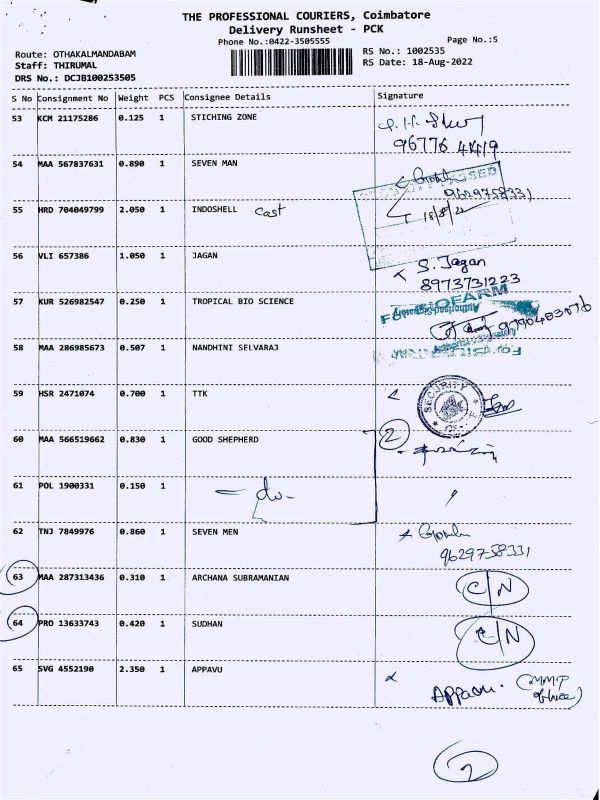 THE PROFESSIONAL COURIERS, Coimbatore
Delivery Runsheet - PCK
Phone No.:0422-3505555
Page No.:5
Route: OTHAKALMANDABAM
RS No.: 1002535
Staff: THIRUMAL
RS Date: 18-Aug-2022
DRS No.: DCJB100253505
S No Consignment No Weight PCS Consignee Details Signature
53 KCM 21175286 0.125 1 STICHING ZONE
96776 44419
54 MAA 567837631 0.890 1 SEVEN MAN
9629758331
18/8/22
55 HRD 704049799 2.050 1 INDOSHELL Cast
56 VLI 657386 1.050 1 JAGAN S. Jagan
8973731223
57 KUR 526982547 0.250 1 TROPICAL BIO SCIENCE
Authorised Signatory
58 MAA 286985673 0.507 1 NANDHINI SELVARAJ
59 HSR 2471074 0.700 1 TTK
SECURITY
2
60 MAA 566519662 0.830 1 GOOD SHEPHERD
61 POL 1900331 0.150 1 - do -
62 TNJ 7849976 0.860 1 SEVEN MEN
9629758331
63 MAA 287313436 0.310 1 ARCHANA SUBRAMANIAN C/N
64 PRO 13633743 0.420 1 SUDHAN C/N
65 SVG 4552190 2.350 1 APPAVU Appavu. (MMP office)
2